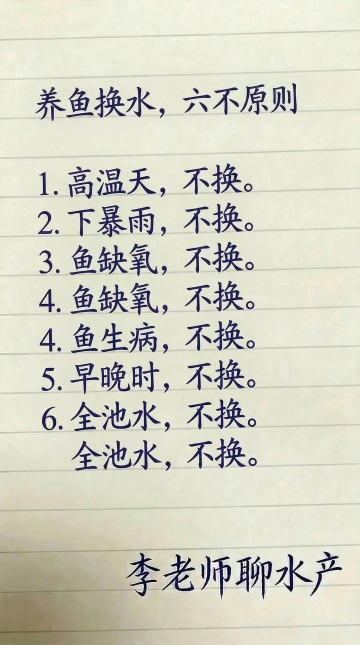 养鱼换水，六不原则
1. 高温天，不换。
2. 下暴雨，不换。
3. 鱼缺氧，不换。
4. 鱼缺氧，不换。
4. 鱼生病，不换。
5. 早晚时，不换。
6. 全池水，不换。
全池水，不换。
李老师聊水产